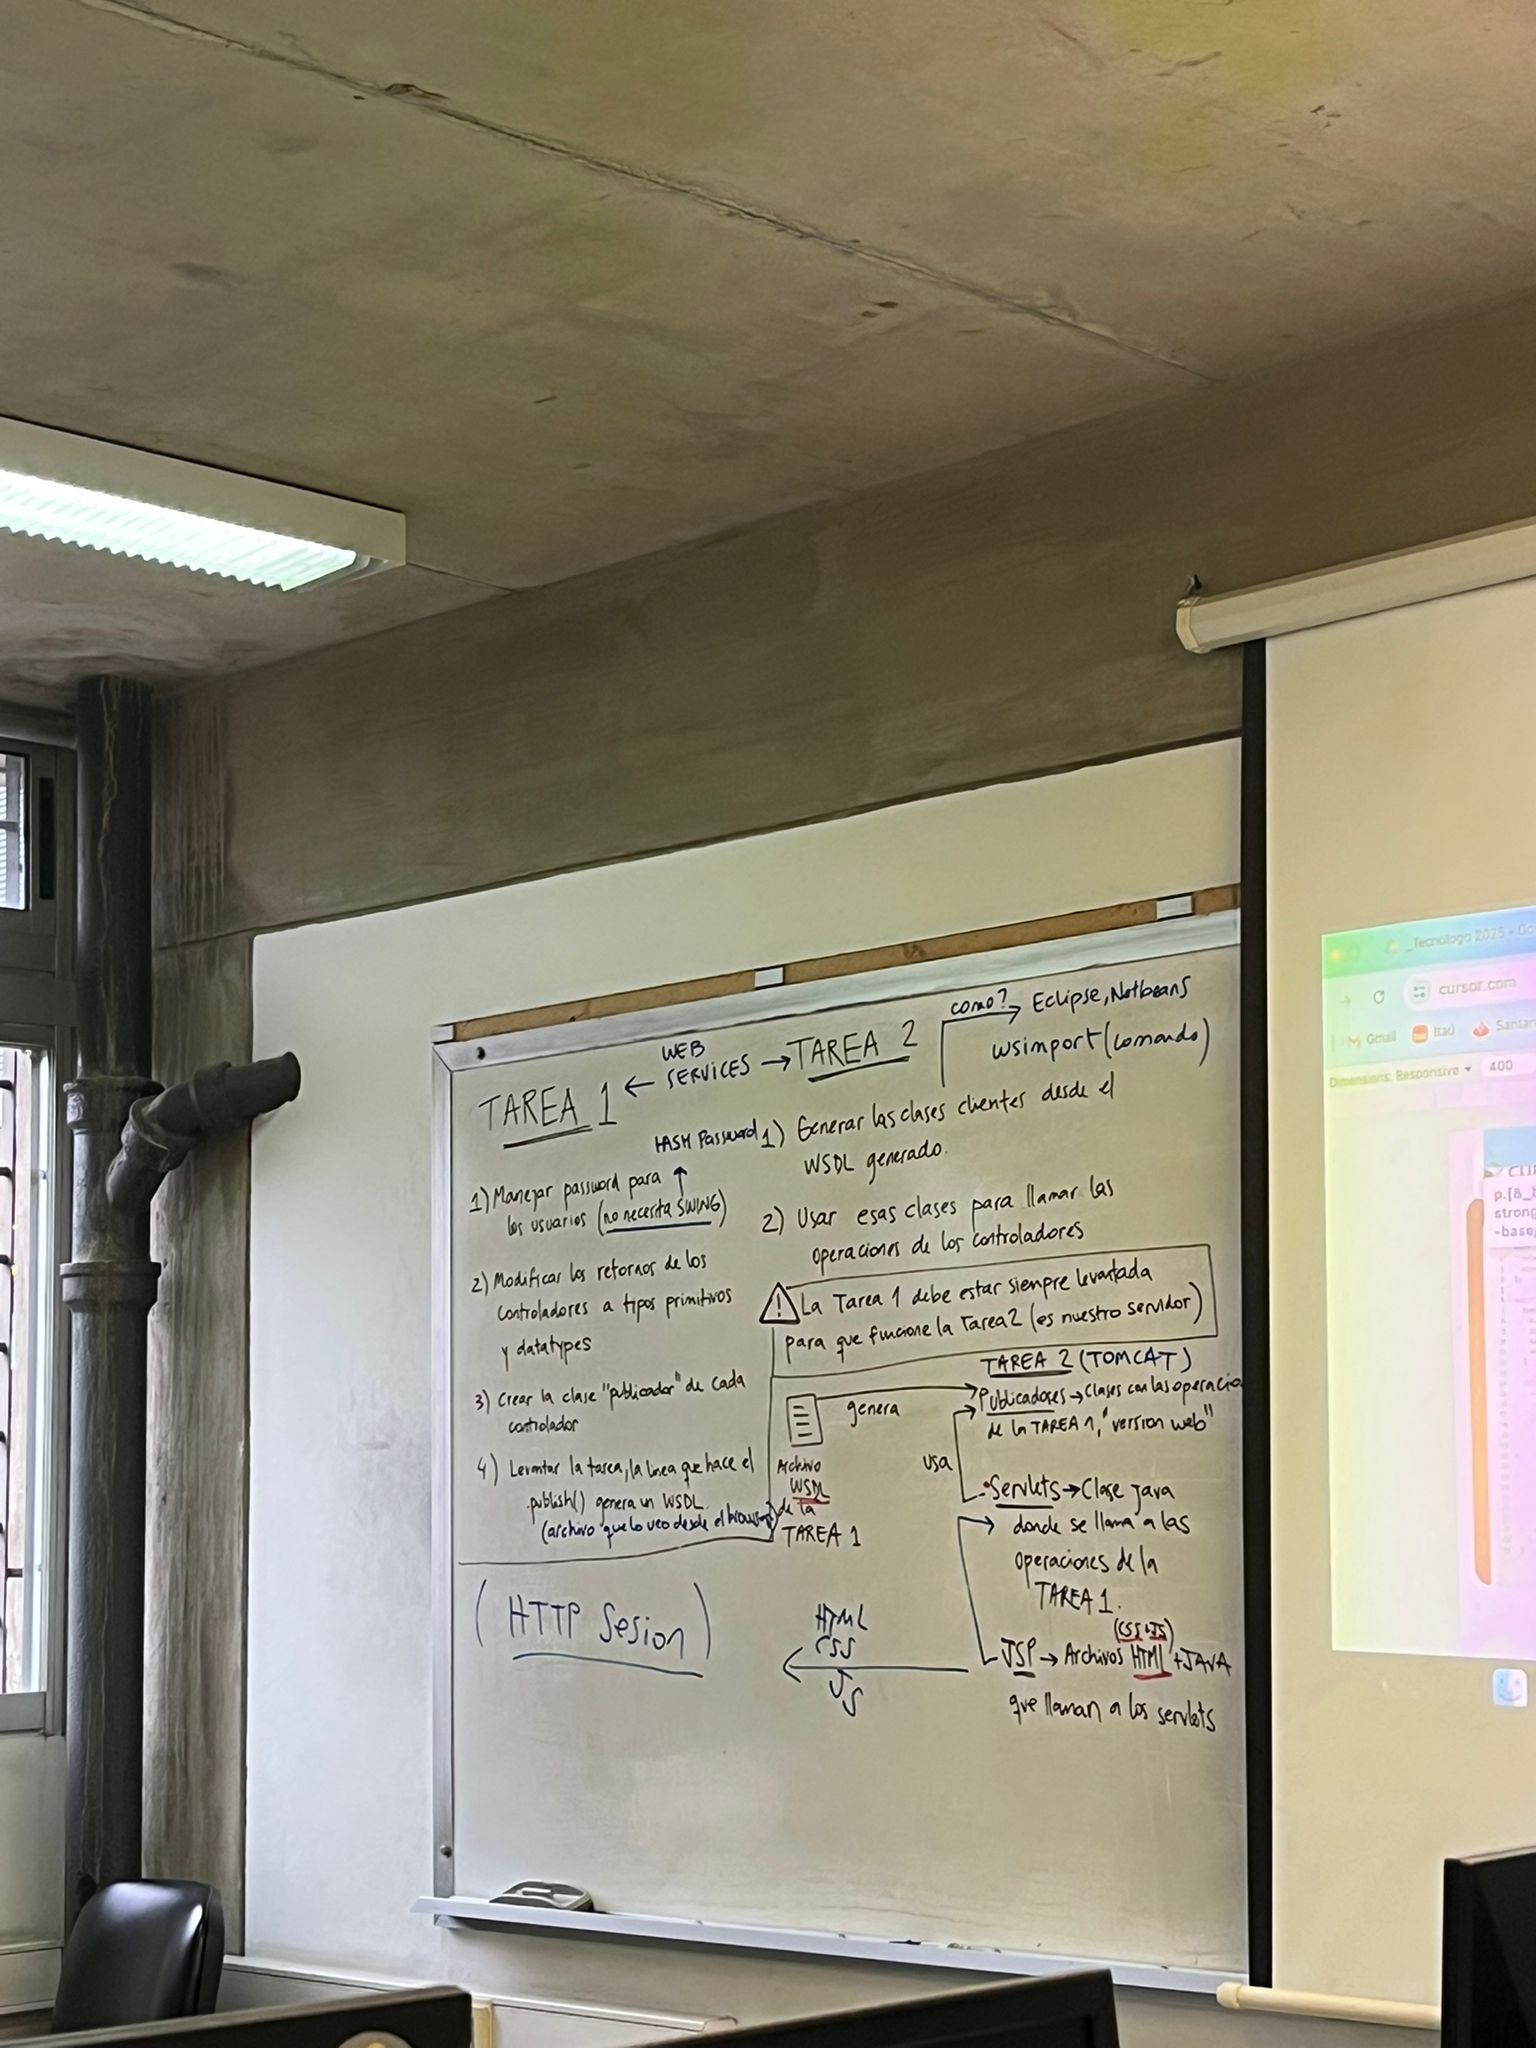 TAREA 1 ← WEB SERVICES → TAREA 2
como? → Eclipse, Netbeans
wsimport (comando)
HASH Password
1) Manejar password para
los usuarios (no necesita SWING)
2) Modificar los retornos de los
controladores a tipos primitivos
y datatypes
3) Crear la clase "publicador" de cada
controlador
4) Levantar la tarea, la linea que hace el
.publish() genera un WSDL.
(archivo que lo veo desde el browser)
1) Generar las clases clientes desde el
WSDL generado.
2) Usar esas clases para llamar las
operaciones de los controladores
! La Tarea 1 debe estar siempre levantada
para que funcione la Tarea 2 (es nuestro servidor)
TAREA 2 (TOMCAT)
Archivo
WSDL
de la
TAREA 1
genera
Publicadores → Clases con las operacio
de la TAREA 1, "version web"
usa
Servlets → Clase java
donde se llama a las
operaciones de la
TAREA 1.
(CSS+JS)
JSP → Archivos HTML + JAVA
que llaman a los servlets
HTML
CSS
JS
(HTTP Sesion)
_Tecnologo 2025 - Co
cursor.com
Gmail
Itaú
Santan
Dimensions: Responsive
400
strong
-base